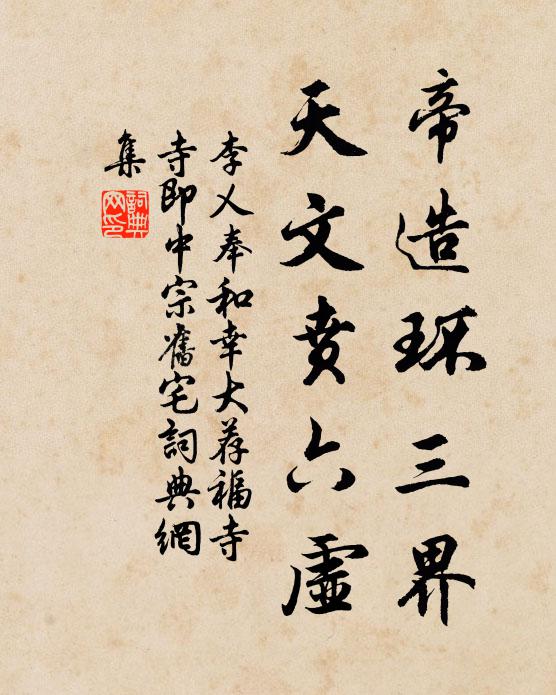 帝造环三界
天文賁六虛
李乂奉和幸大荐福寺
寺即中宗舊宅詞典網
集
詞典
网印